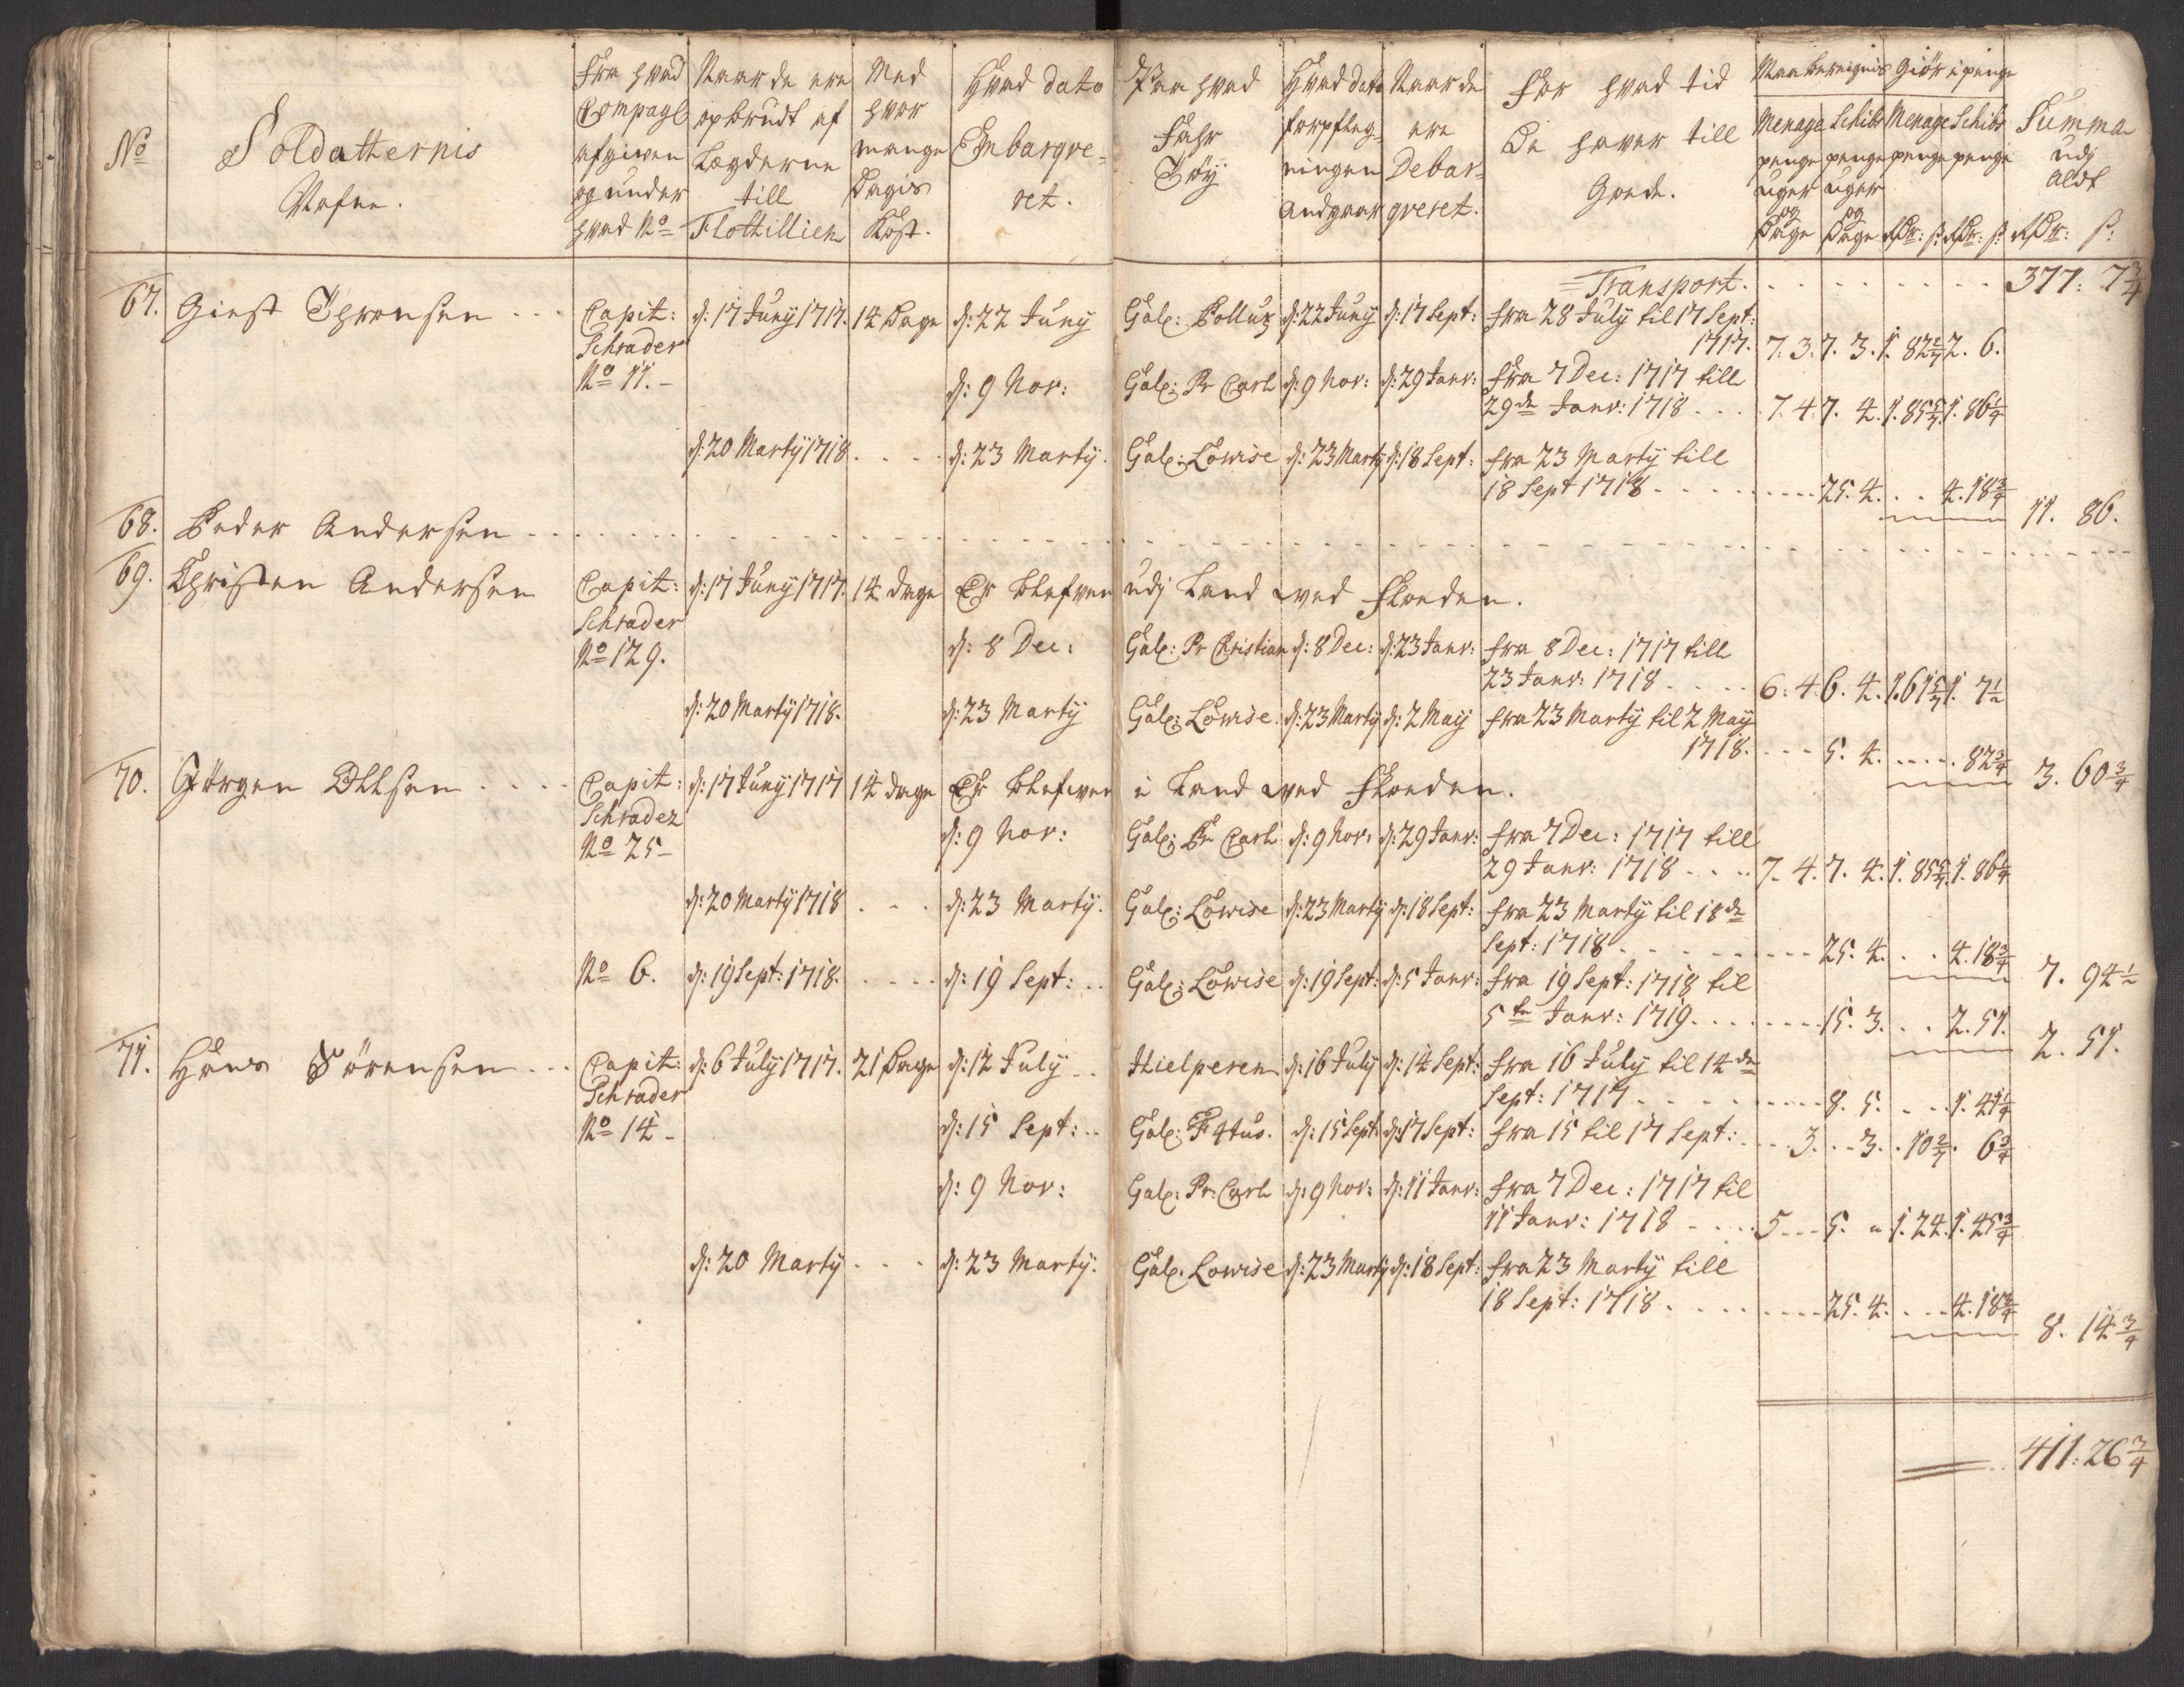 No
Soldatternis
Nafne.
Fra hvad
Compagl
afgiven
og under
hvad No
Naar de ere
opbrudt af
Lægderne
till
Flottillien
Med
hvor
mange
Dagis
Kost.
Hvad dato
Embarqve-
ret.
Paa hvad
Fahr
Tøy
Hvad dato
forpfleg-
ningen
Andgaar
Naar de
ere
Debar-
qveret.
For hvad tid
De haver till
Gode.
Giør i penge
Menage
penge
uger
og
Dage
Schibs
penge
uger
og
Dage
Menage
penge
Rdr: s:
Schibs
penge
Rdr: s:
Summa
udj
aldt
Rdr: s:
Transport. 377: 7 3/4
67. Giest Thronsen Capit: d: 17 Juny 1717. 14 Dage d: 22 Juny Gal: Pollux d: 22 Juny d: 17 Sept: fra 28 July til 17 Sept:
Schrader 1717. 7. 3. 7. 3. 1. 82 2/7 2. 6.
No 11. d: 9 Nov: Gal: Pr Carl d: 9 Nov: d: 29 Janv: fra 7 Dec: 1717 till
29de Janv: 1718 7. 4. 7. 4. 1. 85 5/7 1. 86 1/4
d: 20 Marty 1718 d: 23 Marty. Gal: Lowise d: 23 Marty d: 18 Sept: fra 23 Marty till
18 Sept 1718 25. 4. 4. 18 3/4 11. 86.
68. Peder Andersen
69. Christen Andersen Capit: d: 17 Juny 1717. 14 dage Er blefven udj Land ved Floeden.
Schrader
No 129. d: 8 Dec: Gal: Pr Christian d: 8 Dec: d: 23 Janv: fra 8 Dec: 1717 till
23 Janv: 1718 6. 4. 6. 4. 1. 61 5/7 1. 7 1/2
d: 20 Marty 1718. d: 23 Marty Gal: Lowise. d: 23 Marty d: 2 May fra 23 Marty til 2 May
1718. 5. 4. 82 3/4 3. 60 3/4
70. Jørgen Ollsen Capit: d: 17 Juny 1717 14 dage Er blefven i Land ved Floeden.
Schrader
No 25 d: 9 Nov: Gal: Pr Carl d: 9 Nov: d: 29 Janv: fra 7 Dec: 1717 till
29 Janv: 1718 7. 4. 7. 4. 1. 85 5/7 1. 86 1/4
d: 20 Marty 1718 d: 23 Marty. Gal: Lowise d: 23 Marty d: 18 Sept: fra 23 Marty til 18de
Sept: 1718 25. 4. 4. 18 3/4 7. 94 1/2
No 6. d: 19 Sept: 1718. d: 19 Sept: Gal: Lowise d: 19 Sept: d: 5 Janv: fra 19 Sept: 1718 til
5te Janv: 1719. 15. 3. 2. 51. 2. 51.
71. Hans Sørensen Capit: d: 6 July 1717. 21 Dage d: 12 July Hielperen d: 16 July d: 14 Sept: fra 16 July til 14de
Schrader Sept: 1717 8. 5. 1. 41 1/4
No 14 d: 15 Sept: Gal: d: 15 Sept: d: 17 Sept: fra 15 til 17 Sept: 3. 3. 10 2/7 6 3/4
d: 9 Nov: Gal: Pr: Carl d: 9 Nov: d: 11 Janv: fra 7 Dec: 1717 til
11 Janv: 1718 5 5. 1. 24. 1. 45 3/4
d: 20 Marty d: 23 Marty. Gal. Lowise d: 23 Marty d: 18 Sept: fra 23 Marty till
18 Sept: 1718 25. 4. 4. 18 3/4 8. 14 3/4
411: 26 3/4